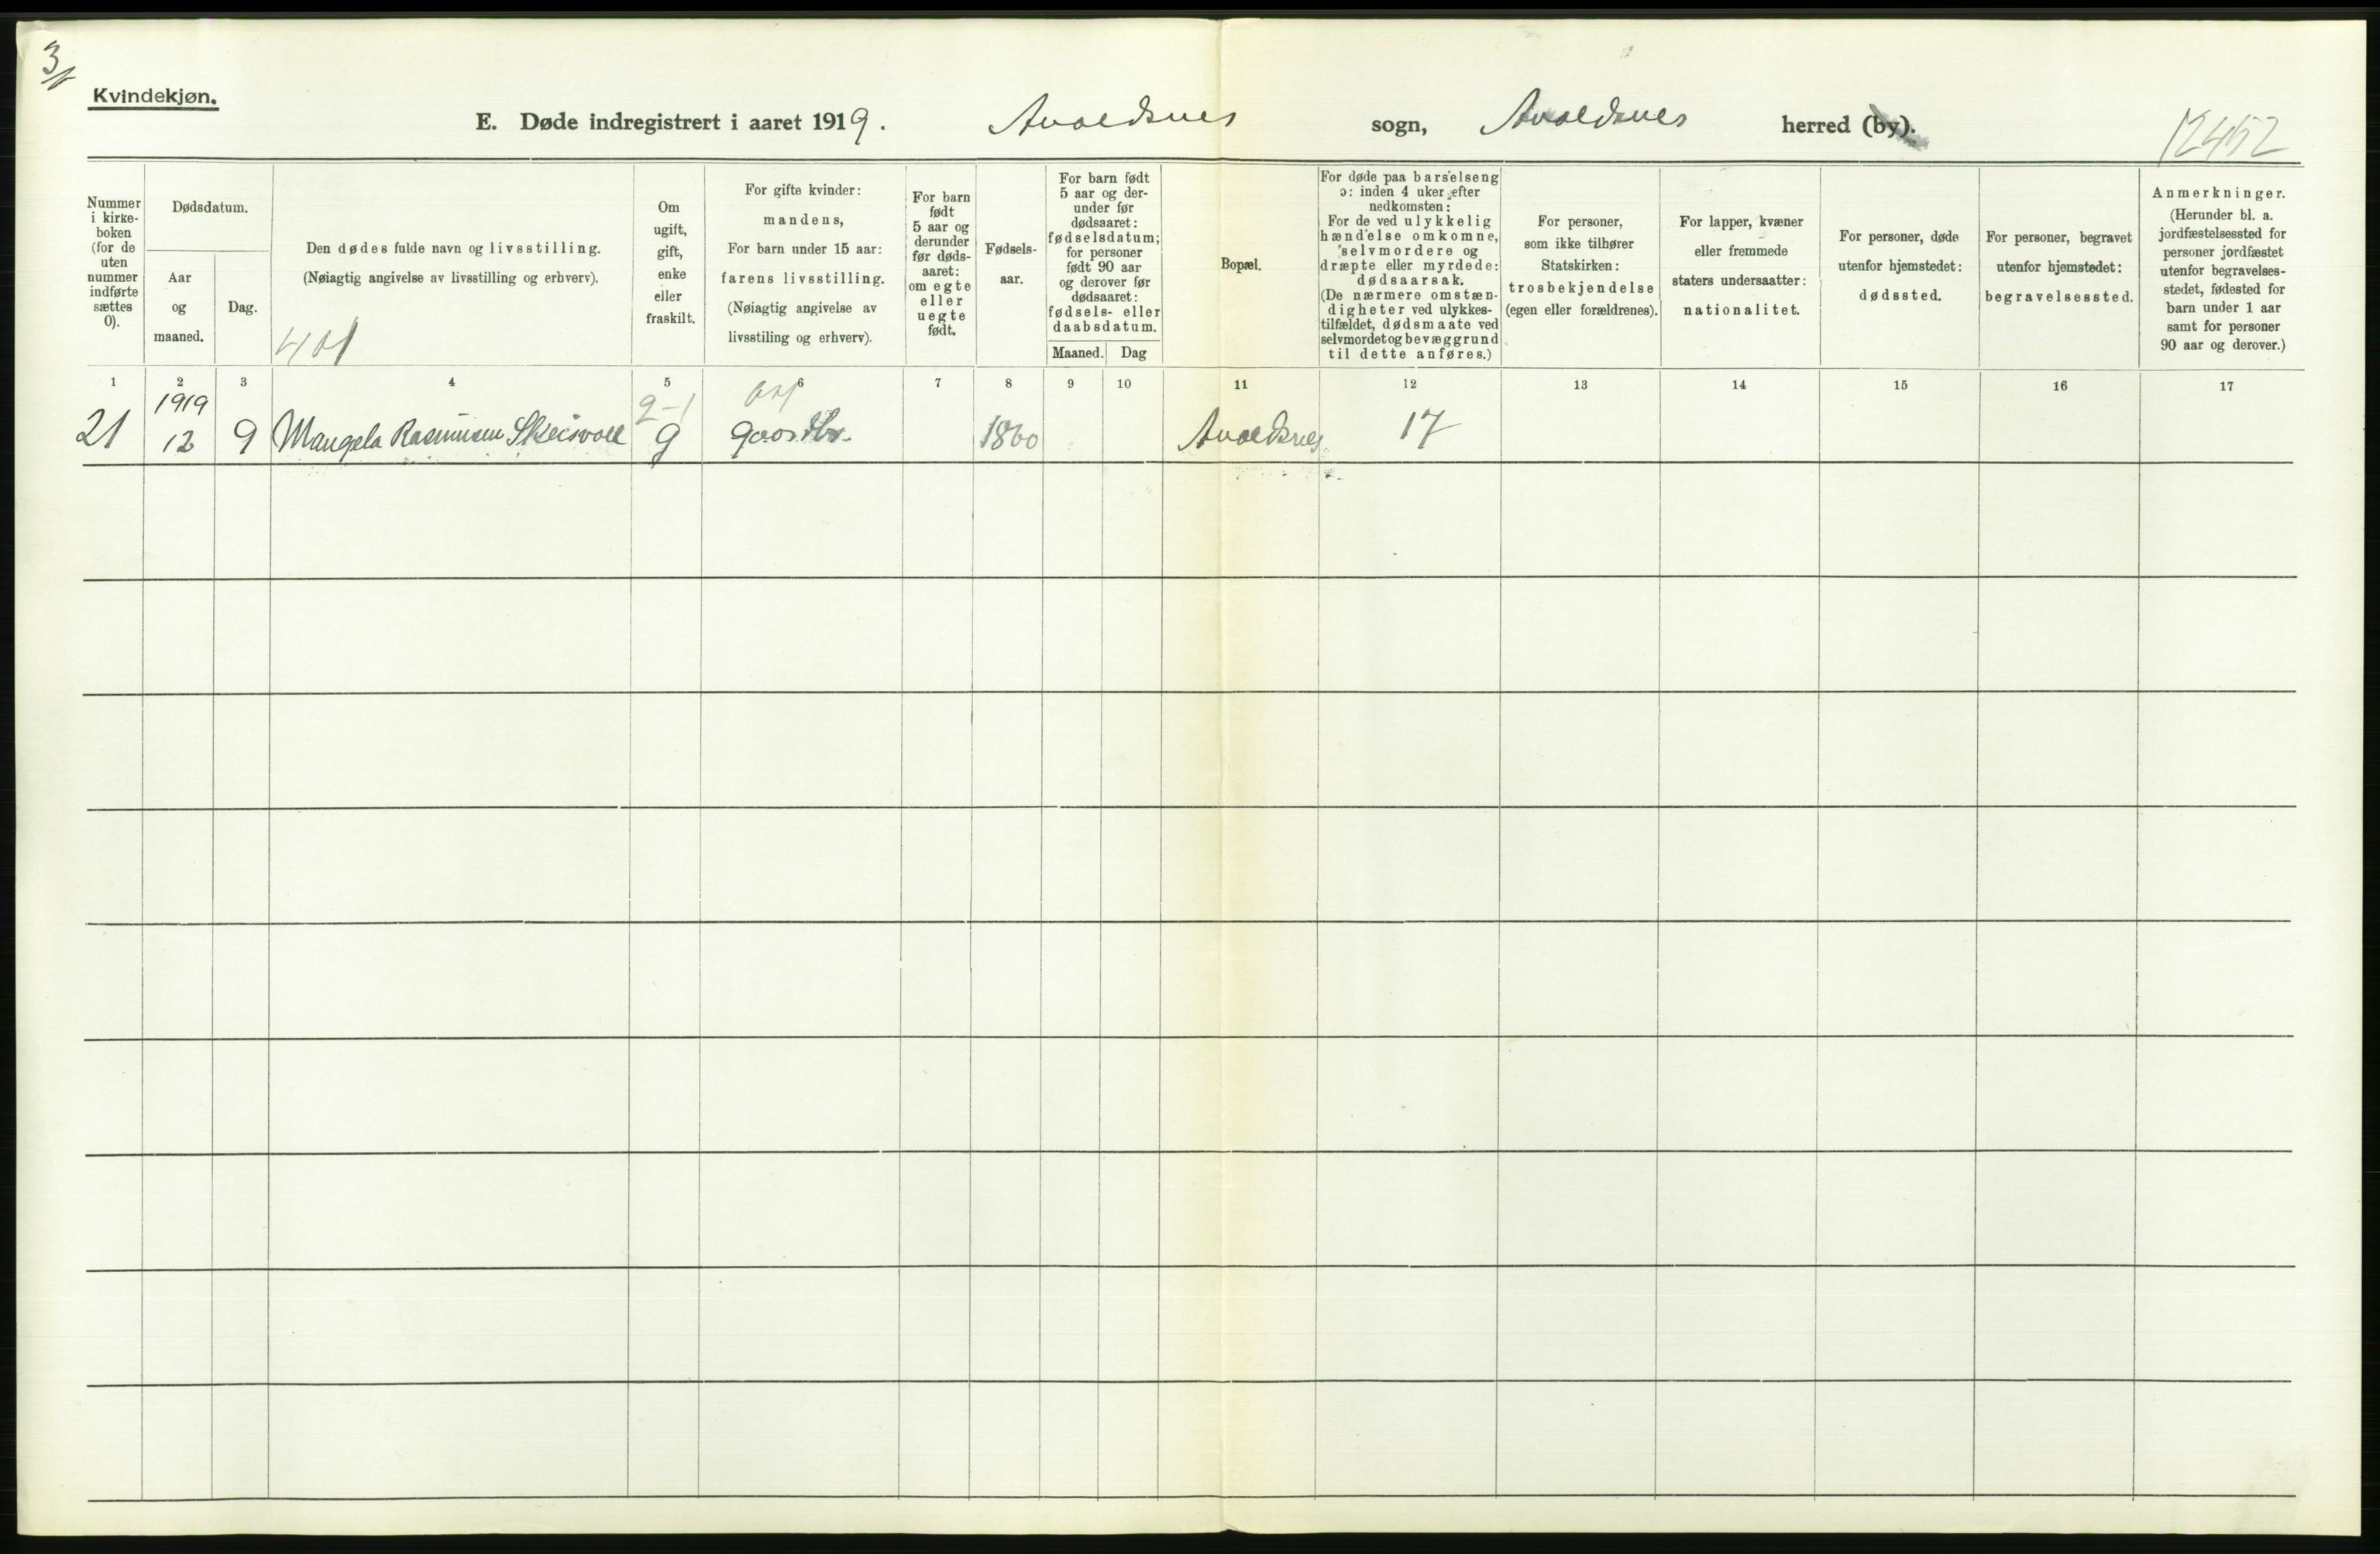 3/1
Kvindekjøn.
E. Døde indregistrert i aaret 1919. Avaldsnes sogn, Avaldsnes herred (by).
12452
Nummer
i kirke-
boken
(for de
uten
nummer
indførte
sættes
0).
Dødsdatum.
Aar
og
maaned.
Dag.
Den dødes fulde navn og livsstilling.
(Nøiagtig angivelse av livsstilling og erhverv).
401
Om
ugift,
gift,
enke
eller
fraskilt.
For gifte kvinder:
mandens,
For barn under 15 aar:
farens livsstilling.
(Nøiagtig angivelse av
livsstiling og erhverv).
For barn
født
5 aar og
derunder
før døds-
aaret:
om egte
eller
uegte
født.
Fødsels-
aar.
For barn født
5 aar og der-
under før
dødsaaret:
fødselsdatum;
for personer
født 90 aar
og derover før
dødsaaret:
fødsels- eller
daabsdatum.
Maaned. Dag
Bopæl.
For døde paa barselseng
ɔ: inden 4 uker efter
nedkomsten:
For de ved ulykkelig
hændelse omkomne,
selvmordere og
dræpte eller myrdede:
dødsaarsak.
(De nærmere omstæn-
digheter ved ulykkes-
tilfældet, dødsmaate ved
selvmordet og bevæggrund
til dette anføres.)
For personer,
som ikke tilhører
Statskirken:
trosbekjendelse
(egen eller forældrenes).
For lapper, kvæner
eller fremmede
staters undersaatter:
nationalitet.
For personer, døde
utenfor hjemstedet:
dødssted.
For personer, begravet
utenfor hjemstedet:
begravelsessted.
Anmerkninger.
(Herunder bl. a.
jordfæstelsessted for
personer jordfæstet
utenfor begravelses-
stedet, fødested for
barn under 1 aar
samt for personer
90 aar og derover.)
1 2 3 4 5 6 7 8 9 10 11 12 13 14 15 16 17
1919 2-1
21 12 9 Mangela Rasmussen Skeisvoll g gaardbr. 1860 Avaldsnes 17